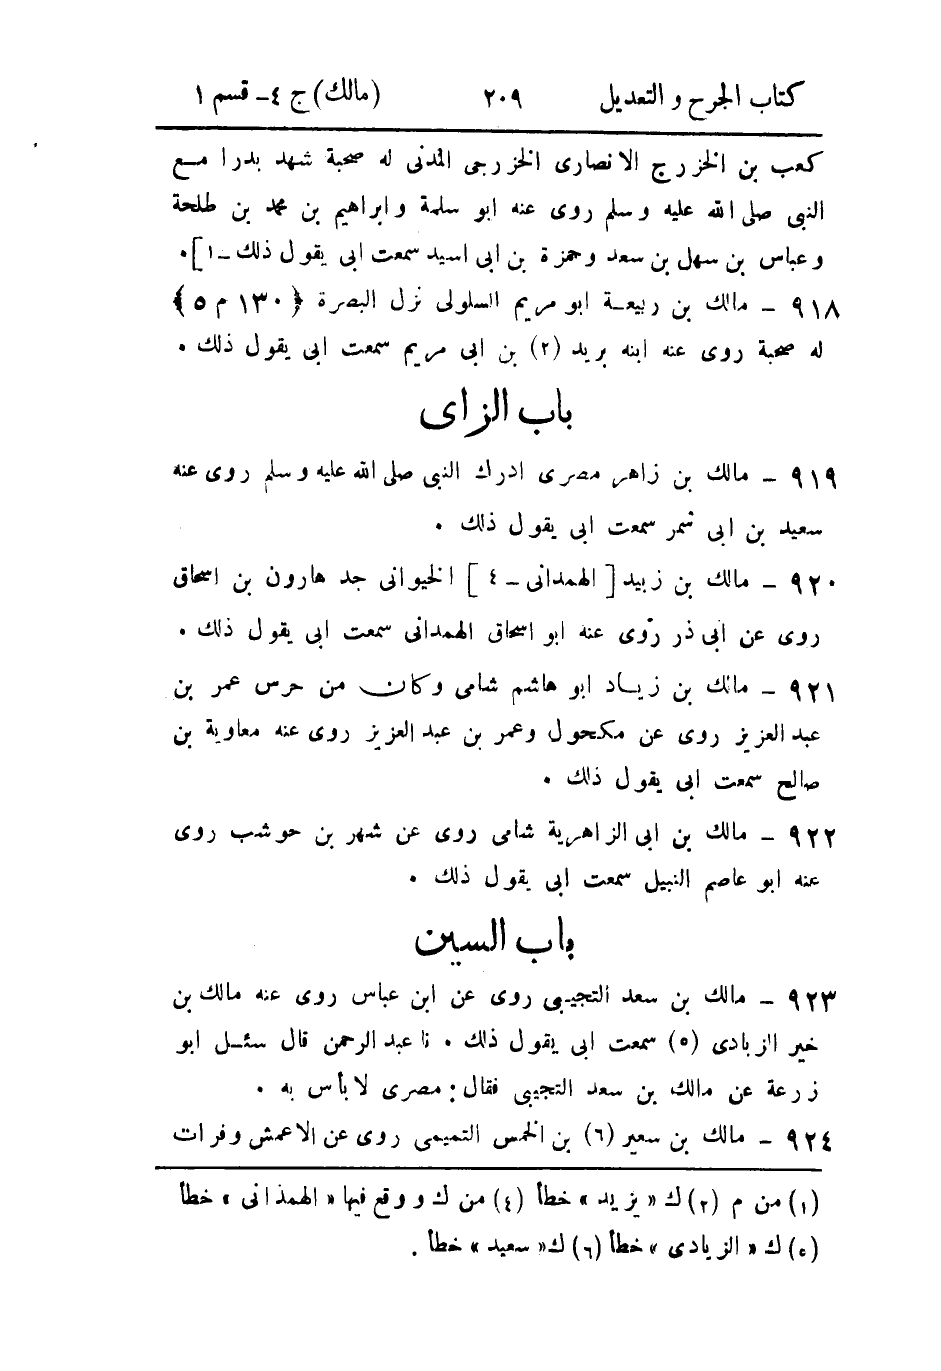 كتاب الجرح و التعديل ٢٠٩ (مالك) ج ٤- قسم ١
كعب بن الخزرج الانصارى الخزرجى المدنى له صحبة شهد بدرا مع
النبى صلى الله عليه و سلم روى عنه ابو سلمة وابراهيم بن محمد بن طلحة
و عباس بن سهل بن سعد و حمزة بن ابى اسيد سمعت ابى يقول ذلك - ١] .
٩١٨ - مالك بن ربيعة ابو مريم السلولى نزل البصرة ﴿١٣٠ م ٥﴾
له صحبة روى عنه ابنه بريد (٢) بن ابى مريم سمعت ابى يقول ذلك .
باب الزاى
٩١٩ - مالك بن زاهر مصرى ادرك النبى صلى الله عليه و سلم روى عنه
سعيد بن ابى شمر سمعت ابى يقول ذلك .
٩٢٠ - مالك بن زبيد [ الهمدانى - ٤ ] الخيوانى جد هارون بن اسحاق
روى عن ابى ذر روى عنه ابو اسحاق الهمدانى سمعت ابى يقول ذلك .
٩٢١ - مالك بن زياد ابو هاشم شامى وكان من حرس عمر بن
عبد العزيز روى عن مكحول وعمر بن عبد العزيز روى عنه معاوية بن
صالح سمعت ابى يقول ذلك .
٩٢٢ - مالك بن ابى الزاهرية شامى روى عن شهر بن حوشب روى
عنه ابو عاصم النبيل سمعت ابى يقول ذلك .
باب السين
٩٢٣ - مالك بن سعد التجيبى روى عن ابن عباس روى عنه مالك بن
خير الزبادى (٥) سمعت ابى يقول ذلك . نا عبد الرحمن قال سئل ابو
زرعة عن مالك بن سعد التجيبى فقال : مصرى لا بأس به .
٩٢٤ - مالك بن سعير (٦) بن الخمس التميمى روى عن الاعمش و فرات
(١) من م (٢) ك « يزيد » خطأ (٤) من ك و وقع فيها « الهمذانى » خطأ
(٥) ك « الزيادى » خطأ (٦) ك « سعيد » خطأ .